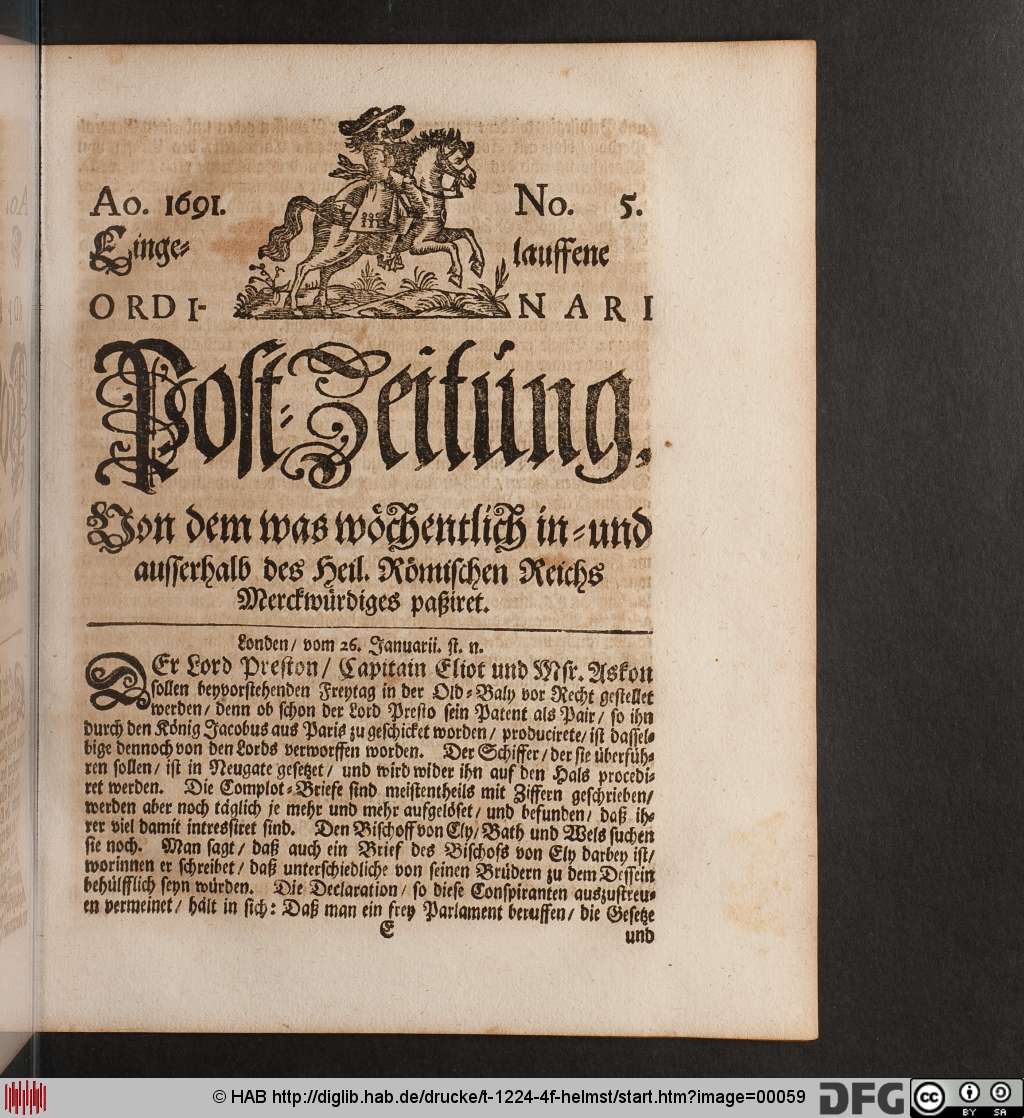 Ao. 1691. No. 5.
Einge- lauffene
ORDI- NARI
Post-Zeitung,
Von dem was wöchentlich in-und
ausserhalb des Heil. Römischen Reichs
Merckwürdiges paßiret.
Londen/ vom 26. Januarii. st. n.
DEr Lord Preston/ Capitain Eliot und Msr. Askon
sollen beyvorstehenden Freytag in der Old-Baly vor Recht gestellet
werden/ denn ob schon der Lord Presto sein Patent als Pair/ so ihn
durch den König Jacobus aus Paris zu geschicket worden/ producirete/ ist dassel-
bige dennoch von den Lords verworffen worden. Der Schiffer/ der sie überfüh-
ren sollen/ ist in Neugate gesetzet/ und wird wider ihn auf den Hals procedi-
ret werden. Die Complot-Briefe sind meistentheils mit Ziffern geschrieben/
werden aber noch täglich je mehr und mehr aufgelöset/ und befunden/ daß ih-
rer viel damit intressiret sind. Den Bischoff von Ely/ Bath und Wels suchen
sie noch. Man sagt/ daß auch ein Brief des Bischofs von Ely darbey ist/
worinnen er schreibet/ daß unterschiedliche von seinen Brüdern zu dem Dessein
behülfflich seyn würden. Die Declaration/ so diese Conspiranten auszustreu-
en vermeinet/ hält in sich: Daß man ein frey Parlament beruffen/ die Gesetze
E und
© HAB http://diglib.hab.de/drucke/t-1224-4f-helmst/start.htm?image=00059 DFG cc BY SA